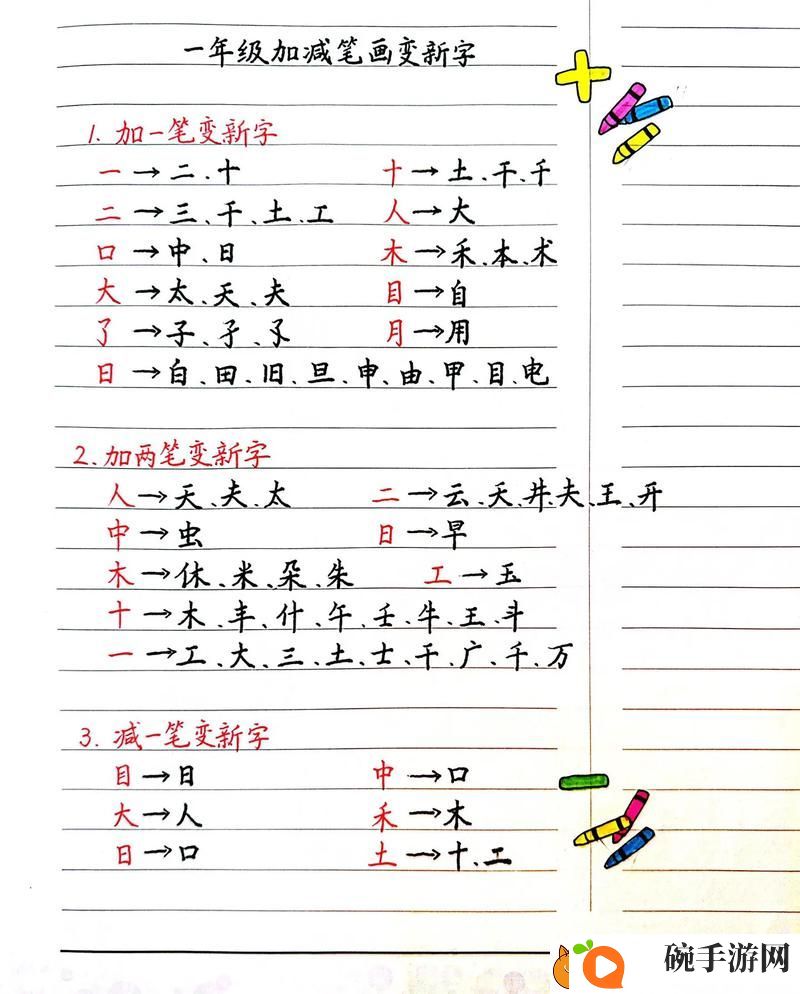 一年级加减笔画变新字
1. 加一笔变新字
一→二、十 十→土、干、千
二→三、干、土、工 人→大
口→中、日 木→禾、本、术
大→太、天、夫 目→自
了→子、孑、孓 月→用
日→白、田、旧、旦、申、由、甲、目、电
2. 加两笔变新字
人→天、夫、太 二→云、天、井、夫、王、开
中→虫 日→早
木→休、米、朵、朱 工→玉
十→木、丰、什、午、壬、牛、王、斗
一→工、大、三、土、士、干、广、千、万
3. 减一笔变新字
目→日 中→口
大→人 禾→木
日→口 土→十、工
碗手游网